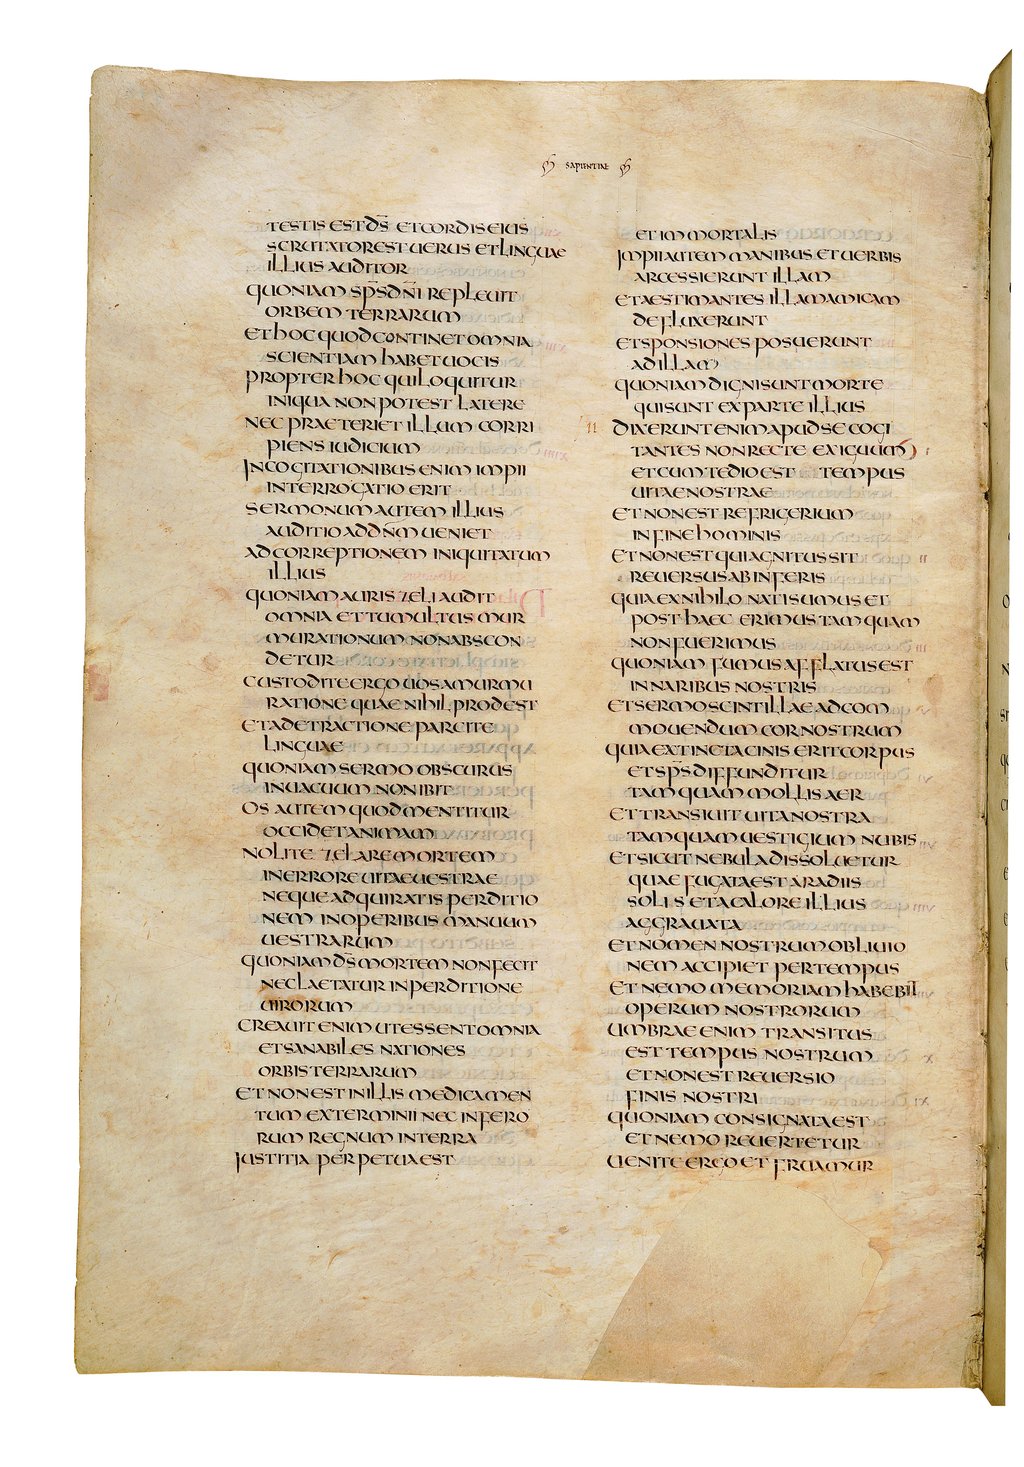 SAPIENTIAE
TESTIS EST D̅S̅ ET CORDIS EIUS
SCRUTATOR EST UERUS ET LINGUAE
ILLIUS AUDITOR
QUONIAM SP̅S̅ D̅N̅I REPLEUIT
ORBEM TERRARUM
ET HOC QUOD CONTINET OMNIA
SCIENTIAM HABET UOCIS
PROPTER HOC QUI LOQUITUR
INIQUA NON POTEST LATERE
NEC PRAETERIET ILLUM CORRI
PIENS IUDICIUM
IN COGITATIONIBUS ENIM IMPII
INTERROGATIO ERIT
SERMONUM AUTEM ILLIUS
AUDITIO AD D̅N̅M UENIET
AD CORREPTIONEM INIQUITATUM
ILLIUS
QUONIAM AURIS ZELI AUDIT
OMNIA ET TUMULTUS MUR
MURATIONUM NON ABSCON
DETUR
CUSTODITE ERGO UOS A MURMU
RATIONE QUAE NIHIL PRODEST
ET A DETRACTIONE PARCITE
LINGUAE
QUONIAM SERMO OBSCURUS
IN UACUUM NON IBIT
OS AUTEM QUOD MENTITUR
OCCIDET ANIMAM
NOLITE ZELARE MORTEM
IN ERRORE UITAE UESTRAE
NEQUE ADQUIRATIS PERDITIO
NEM IN OPERIBUS MANUUM
UESTRARUM
QUONIAM D̅S̅ MORTEM NON FECIT
NEC LAETATUR IN PERDITIONE
UIRORUM
CREAUIT ENIM UT ESSENT OMNIA
ET SANABILES NATIONES
ORBIS TERRARUM
ET NON EST IN ILLIS MEDICAMEN
TUM EXTERMINII NEC INFERO
RUM REGNUM IN TERRA
IUSTITIA PERPETUA EST
ET IMMORTALIS
IMPII AUTEM MANIBUS ET UERBIS
ARCESSIERUNT ILLAM
ET AESTIMANTES ILLAM AMICAM
DEFLUXERUNT
ET SPONSIONES POSUERUNT
AD ILLAM
QUONIAM DIGNI SUNT MORTE
QUI SUNT EX PARTE ILLIUS
II DIXERUNT ENIM APUD SE COGI
TANTES NON RECTE EXIGUUM
ET CUM TEDIO EST TEMPUS
UITAE NOSTRAE
ET NON EST REFRIGERIUM
IN FINE HOMINIS
ET NON EST QUI AGNITUS SIT
REUERSUS AB INFERIS
QUIA EX NIHILO NATI SUMUS ET
POST HAEC ERIMUS TAMQUAM
NON FUERIMUS
QUONIAM FUMUS AFFLATUS EST
IN NARIBUS NOSTRIS
ET SERMO SCINTILLAE AD COM
MOUENDUM COR NOSTRUM
QUIA EXTINCTA CINIS ERIT CORPUS
ET SP̅S̅ DIFFUNDITUR
TAMQUAM MOLLIS AER
ET TRANSIUIT UITA NOSTRA
TAMQUAM UESTIGIUM NUBIS
ET SICUT NEBULA DISSOLUETUR
QUAE FUGATA EST A RADIIS
SOLIS ET A CALORE ILLIUS
AGGRAUATA
ET NOMEN NOSTRUM OBLIUIO
NEM ACCIPIET PER TEMPUS
ET NEMO MEMORIAM HABEBIT
OPERUM NOSTRORUM
UMBRAE ENIM TRANSITUS
EST TEMPUS NOSTRUM
ET NON EST REUERSIO
FINIS NOSTRI
QUONIAM CONSIGNATA EST
ET NEMO REUERTETUR
UENITE ERGO ET FRUAMUR